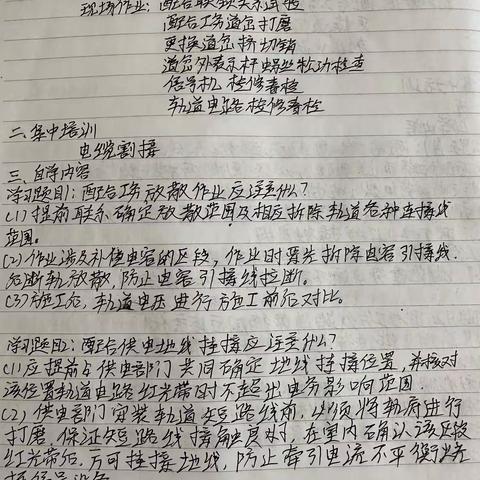 现场作业：配合联锁关系试验
配合工务道岔打磨
更换道岔挤切销
道岔外表示杆螺丝松动检查
信号机检修毒检
轨道电路检修毒检
二、集中培训
电缆割接
三、自学内容
学习题目1：配合工务放散作业应注意什么？
(1)提前联系确定放散范围及相应拆除轨道各种连接线
范围。
(2)作业涉及补偿电容的区段，作业时要先拆除电容引接线，
后断轨放散，防止电容引接线拉断。
(3)施工后，轨道电压进行施工前后对比。
学习题目2：配合供电地线挂接应注意什么？
(1)应提前与供电部门共同确定地线挂接位置，并核对
该位置轨道电路红光带时不超出电务影响范围
(2)供电部门安装轨道短路线前，必须将轨底进行
打磨，保证短路线接触良好，在室内确认该区段
红光带后，方可挂接地线，防止牵引电流不平衡烧